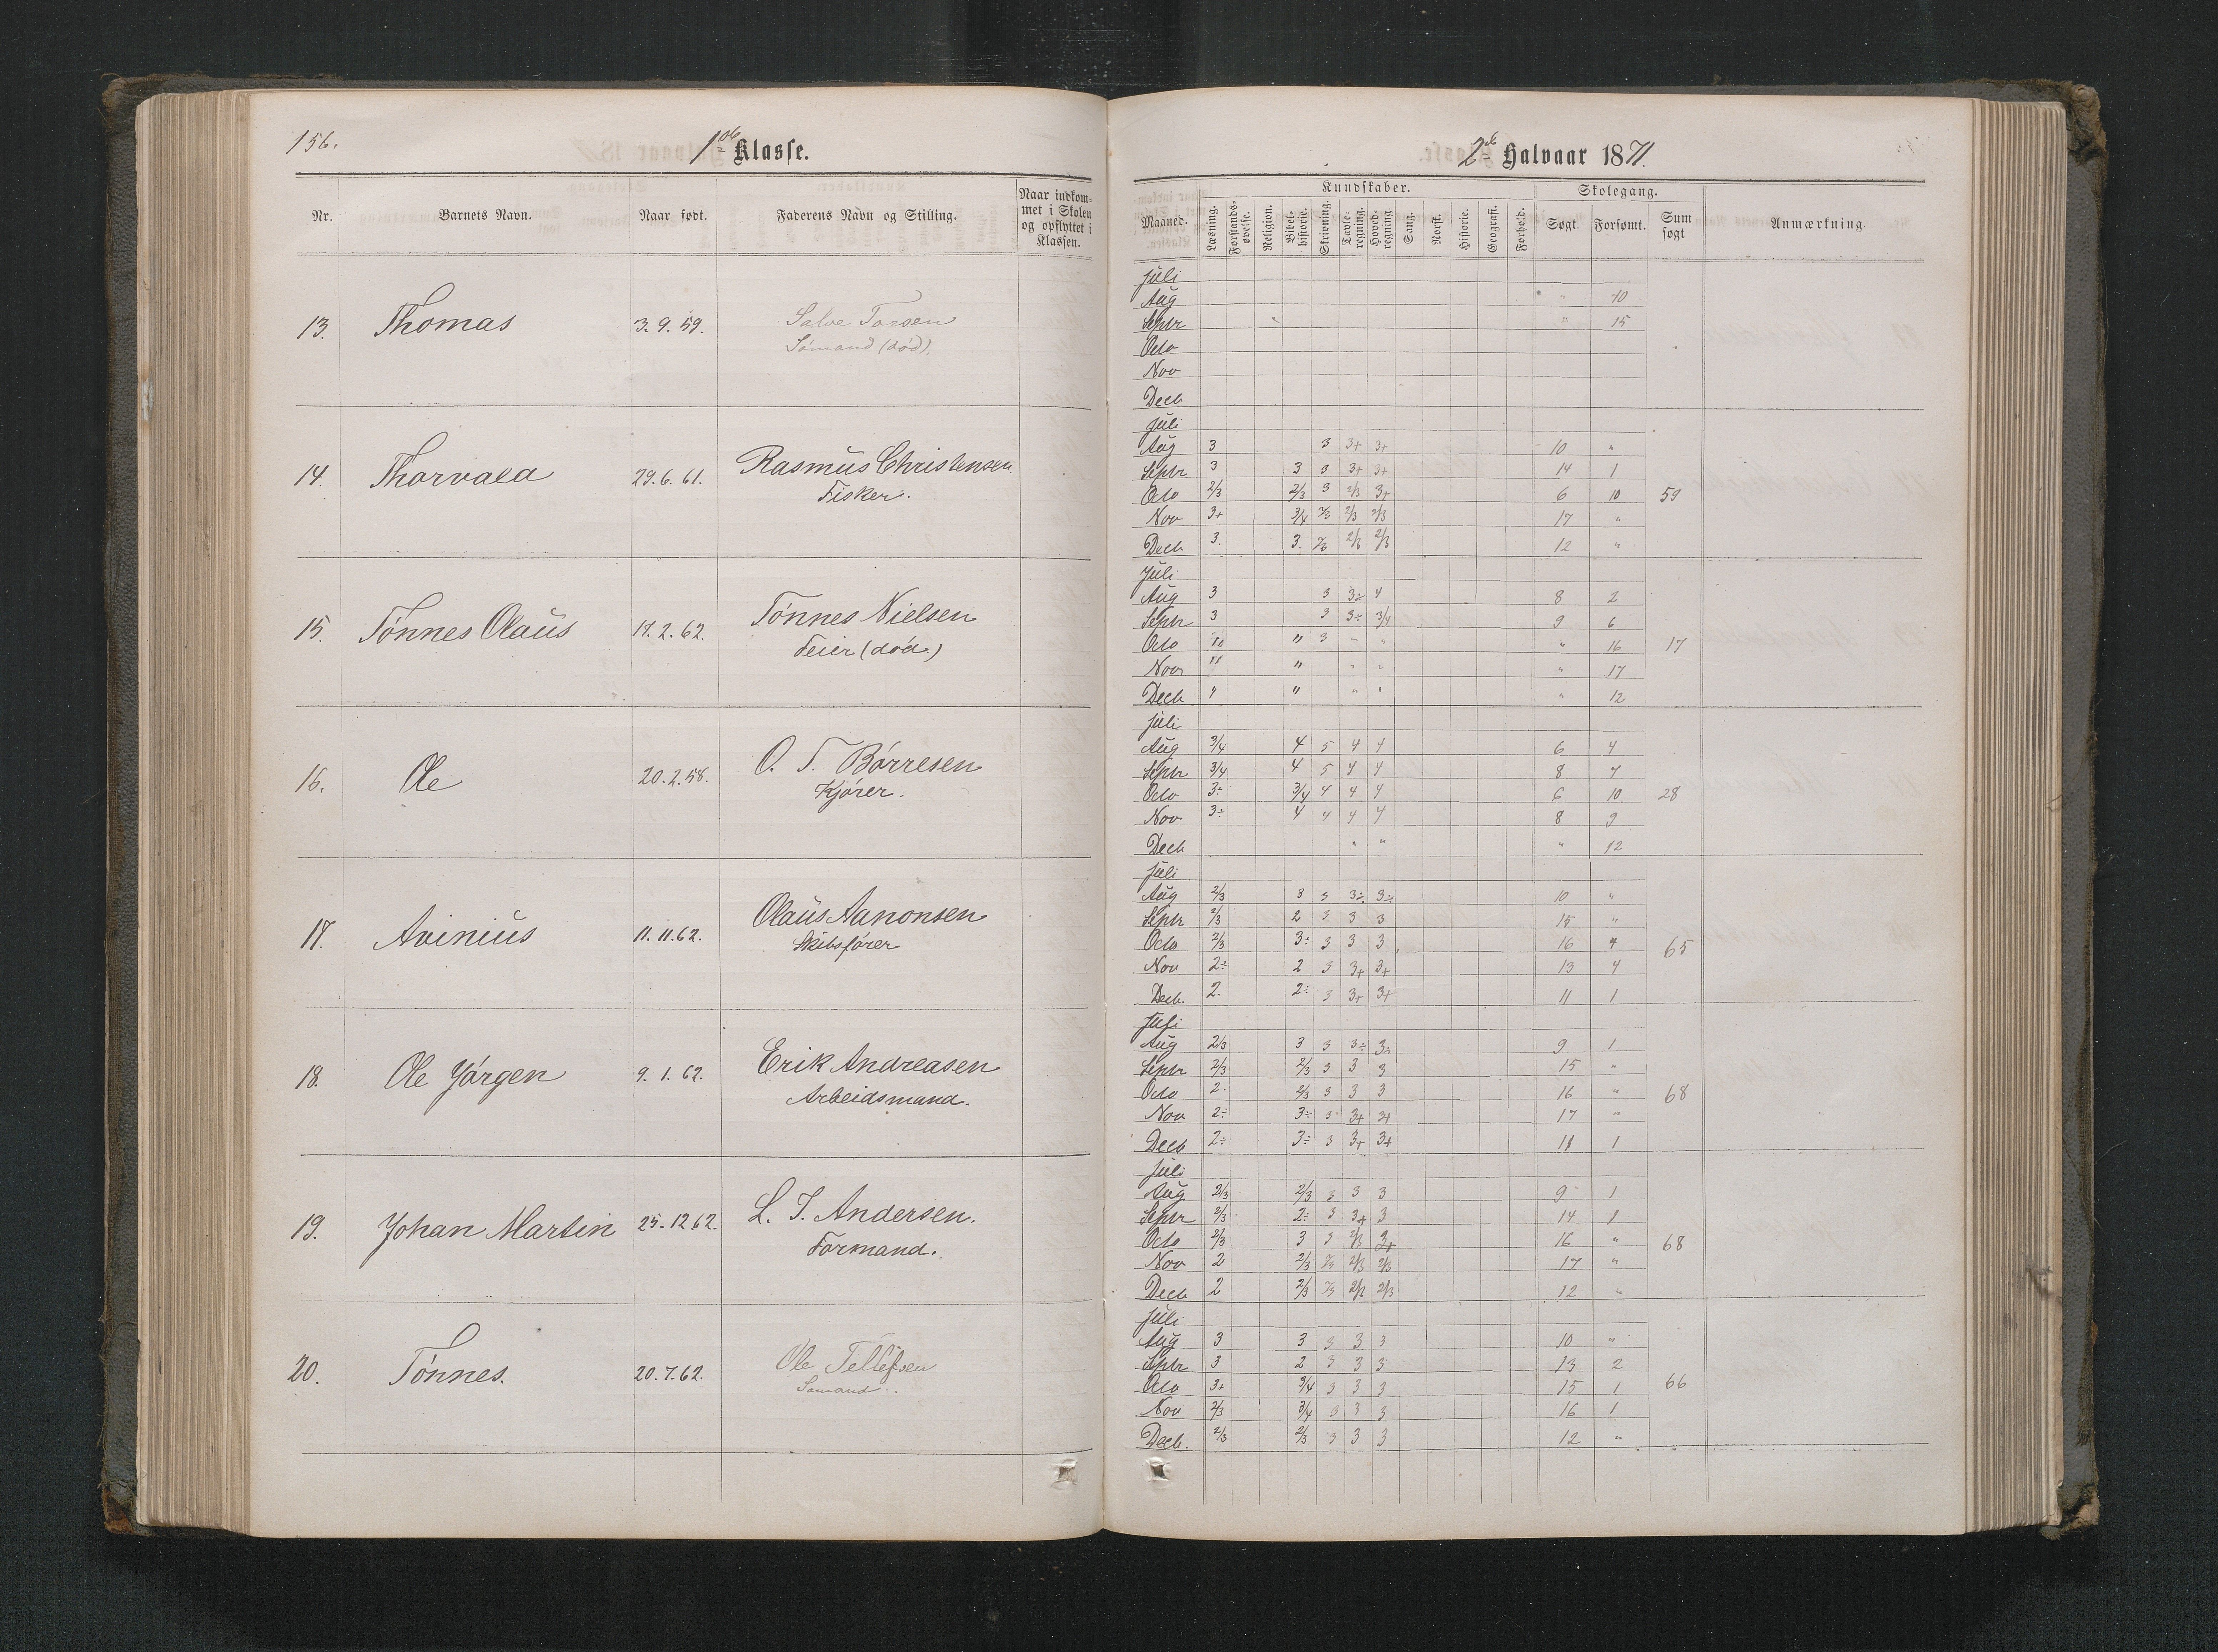 156.
1ste Klasse.
Nr. Barnets Navn. Naar født. Faderens Navn og Stilling. Naar indkommet i Skolen og opflyttet i Klassen.
13. Thomas 3.9.59. Salve Torsen
Sømand (død).
14. Thorvald 29.6.61. Rasmus Christensen
Fisker.
15. Tönnes Olaüs 17.2.62. Tönnes Nielsen
Feier (död.)
16. Ole 20.2.58. O. T. Börresen
Kjörer.
17. Avinius 11.11.62. Olaüs Aanonsen
Skibsfører
18. Ole Jörgen 9.1.62. Erik Andreasen
Arbeidsmand.
19. Johan Martin 25.12 62. L. J. Andersen.
Formand.
20. Tönnes. 20.7.62. Ole Tellefsen
Sömand.
2det Halvaar 1871.
Kundskaber. Skolegang.
Maaned. Læsning. Forstandsøvelse. Religion. Bibelhistorie. Skrivning. Tavleregning. Hovedregning. Sang. Norsk. Historie. Geografi. Forhold. Søgt. Forsømt. Sum søgt Anmærkning.
Juli
Aug " 10
Septr " 15
Octo
Nov
Decb
Juli
Aug 3 3 3+ 3+ 10 "
Septr 3 3 3 3+ 3+ 14 1
Octo 2/3 2/3 3 2/3 3+ 6 10 59
Nov 3+ 3/4 2/3 2/3 2/3 17 "
Decb 3. 3. 2/3 2/3 2/3 12 "
Juli
Aug 3 3 3÷ 4 8 2
Septr 3 3 3÷ 3/4 9 6
Octo " " 3 " " " 16 17
Nov " " " " " 17
Decb " " " " " 12
Juli
Aug 3/4 4 5 4 4 6 4
Septr 3/4 4 5 4 4 8 7
Octo 3÷ 3/4 4 4 4 6 10 28
Nov 3÷ 4 4 4 4 8 9
Decb " " " 12
Juli
Aug 2/3 3 3 3÷ 3÷ 10 "
Septr 2/3 2 3 3 3 15 "
Octo 2/3 3÷ 3 3 3 16 " 65
Nov 2÷ 2 3 3+ 3+ 13 4
Decb. 2. 2÷ 3 3+ 3+ 11 1
Juli
Aug 2/3 3 3 3÷ 3÷ 9 1
Septr 2/3 2/3 3 3 3 15 "
Octo 2. 2/3 3 3 3 16 " 68
Nov 2÷ 3÷ 3 3+ 3+ 17 "
Decb 2÷ 3÷ 3 3+ 3+ 11 1
Juli
Aug 2/3 2/3 3 3 3 9 1
Septr 2/3 2÷ 3 3+ 3 14 1
Octo 2/3 3 3 2/3 3+ 16 " 68
Nov 2 2/3 2/3 2/3 2/3 17 "
Decb 2 2/3 2/3 2/3 2/3 12 "
Juli
Aug 3 3 3 3 3 10 "
Septr 3 2 3 3 3 13 2
Octo 3+ 3/4 3 3 3 15 1 66
Nov 2/3 3/4 3 3 3 16 1
Decb. 2/3 2/3 3 3 3 12 "